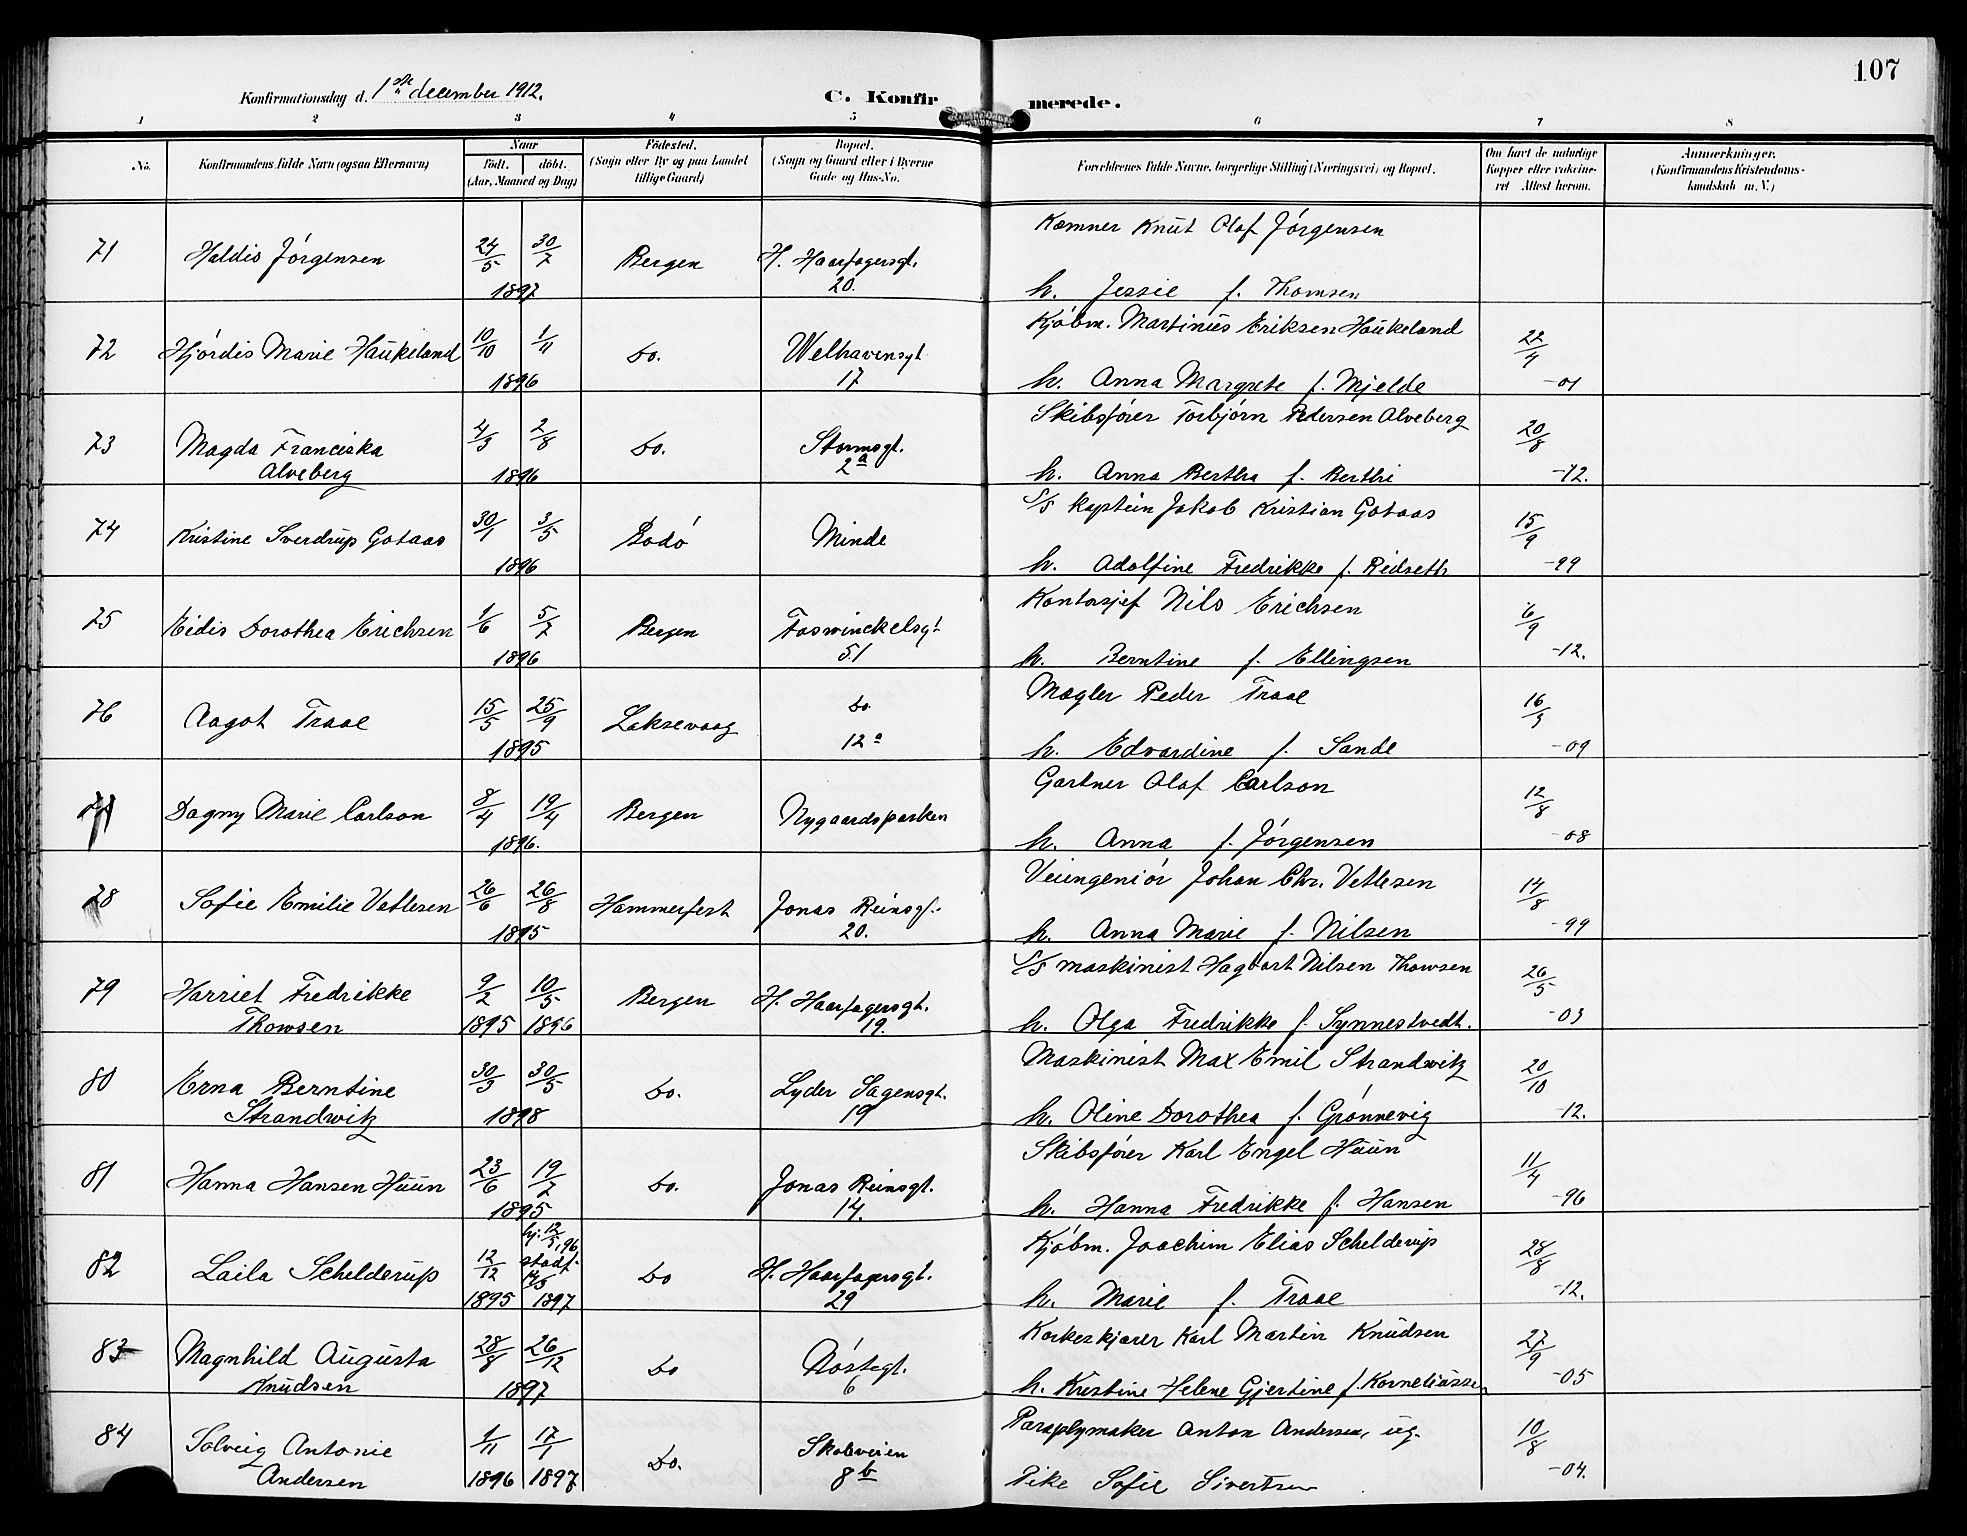 107
Konfirmationsdag d. 1ste december 1912.
C. Konfir merede.
1 2 3 4 5 6 7 8
No.
Konfirmandens fulde Navn (ogsaa Efternavn)
Naar
födt. döbt.
(Aar, Maaned og Dag)
Födested.
(Sogn eller By og paa Landet
tillige Gaard)
Bopæl.
(Sogn og Gaard eller i Byerne
Gade og Hus-No.
Forældrenes fulde Navne, borgerlige Stilling (Næringsvei) og Bopæl.
Om havt de naturlige
Kopper eller vakcine-
ret Attest herom.
Anmærkninger.
(Konfirmandens Kristendoms-
kundskab m. V.)
71 Haldis Jörgensen 24/5 30/7 1897 Bergen H. Haarfagersgt. 20.
Kæmner Knut Olaf Jörgensen
h. Jessie f. Thomsen
72 Hjördis Marie Haukeland 10/10 1/11 1896 do. Welhavensgt 17
Kjöbm. Martinus Eriksen Haukeland 22/4
h. Anna Margrete f. Mjelde -01
73 Magda Franciska
Alveberg 4/3 2/8 1896 do. Stormsgt. 2a
Skibsförer Torbjörn Pedersen Alveberg 20/8
h. Anna Bertha f. Berthi -12.
74 Kristine Sverdrup Gotaas 30/1 3/5 1896 Bodö Minde
S/S kaptein Jakob Kristian Gotaas 15/9
h. Adolfine Fredrikke f. Ridseth -99
75 Eidis Dorothea Erichsen 1/6 5/7 1896 Bergen Foswinckelsgt 51
Kontorsjef Nils Erichsen 6/9
h. Berntine f. Ellingsen -12.
76 Aagot Traae 15/5 25/9 1895 Laksevaag do 12a
Mægler Peder Traae 16/3
h. Edvardine f. Sande -09
77 Dagny Marie Carlson 8/4 19/4 1896. Bergen Nygaardsparken
Gartner Olaf Carlson 12/8
h. Anna f. Jörgensen -08
78 Sofie Emilie Vetlesen 26/6 26/8 1895 Hammerfest Jonas Reinsgt. 20.
Veiingeniör Johan Chr. Vetlesen 14/8
h. Anna Marie f. Nilsen -99
79 Harriet Fredrikke
Thowsen 9/2 10/5 1895 1896 Bergen H. Haarfagersgt. 19.
S/S maskinist Hagbart Nilsen Thowsen 26/5
h. Olga Fredrikke f. Synnestvedt. -03
80 Erna Berntine
Strandwitz 30/3 30/5 1898 do. Lyder Sagensgt. 19
Maskinist Max Emil Strandwitz 20/10
h. Oline Dorothea f. Grönnevig -12.
81 Hanna Hansen Huun 23/6 19/7 1895 do. Jonas Reinsgt. 14.
Skibsförer Karl Engel Huun 11/4
h. Hanna Fredrikke f. Hansen -96
82 Laila Schelderup 12/12 1895 hj. 12/5, 96 stadf. 14/5 1897 do H. Haarfagersgt. 29
Kjöbm. Joachim Elias Schelderup 28/8
h. Marie f. Traae -12.
83 Magnhild Augusta
Knudsen 28/8 26/12 1897 do Nöstegt. 6
Korkeskjærer Karl Martin Knudsen 27/9
h. Kristine Helene Gjertine f. Korneliussen -05
84 Solveig Antonie
Andersen 1/11 17/1 1896 1897 do. Skoleveien 8b
Paraplymaker Anton Andersen, ug. 10/8
Pike Sofie Sivertsen -04.